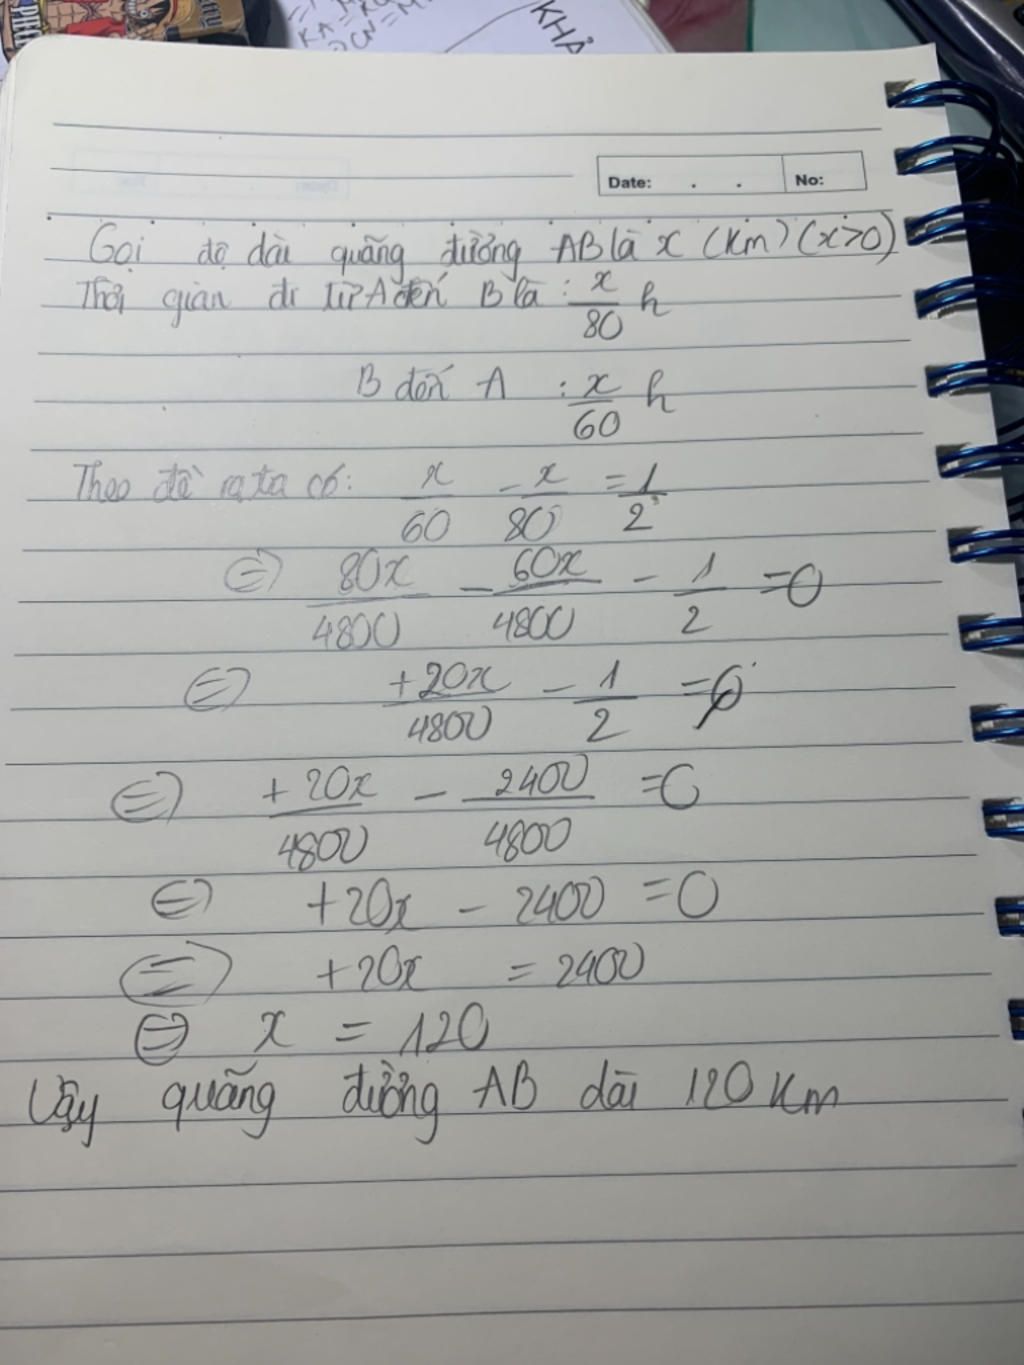 KHẢ
Date: . . No:
Gọi độ dài quãng đường AB là x (km) (x>0)
Thời gian đi từ A đến B là : x/80 h
B đến A : x/60 h
Theo đề ra ta có: x/60 - x/80 = 1/2
⇔ 80x/4800 - 60x/4800 - 1/2 = 0
⇔ +20x/4800 - 1/2 = 0
⇔ +20x/4800 - 2400/4800 = 0
⇔ +20x - 2400 = 0
⇔ +20x = 2400
⇔ x = 120
Vậy quãng đường AB dài 120 km